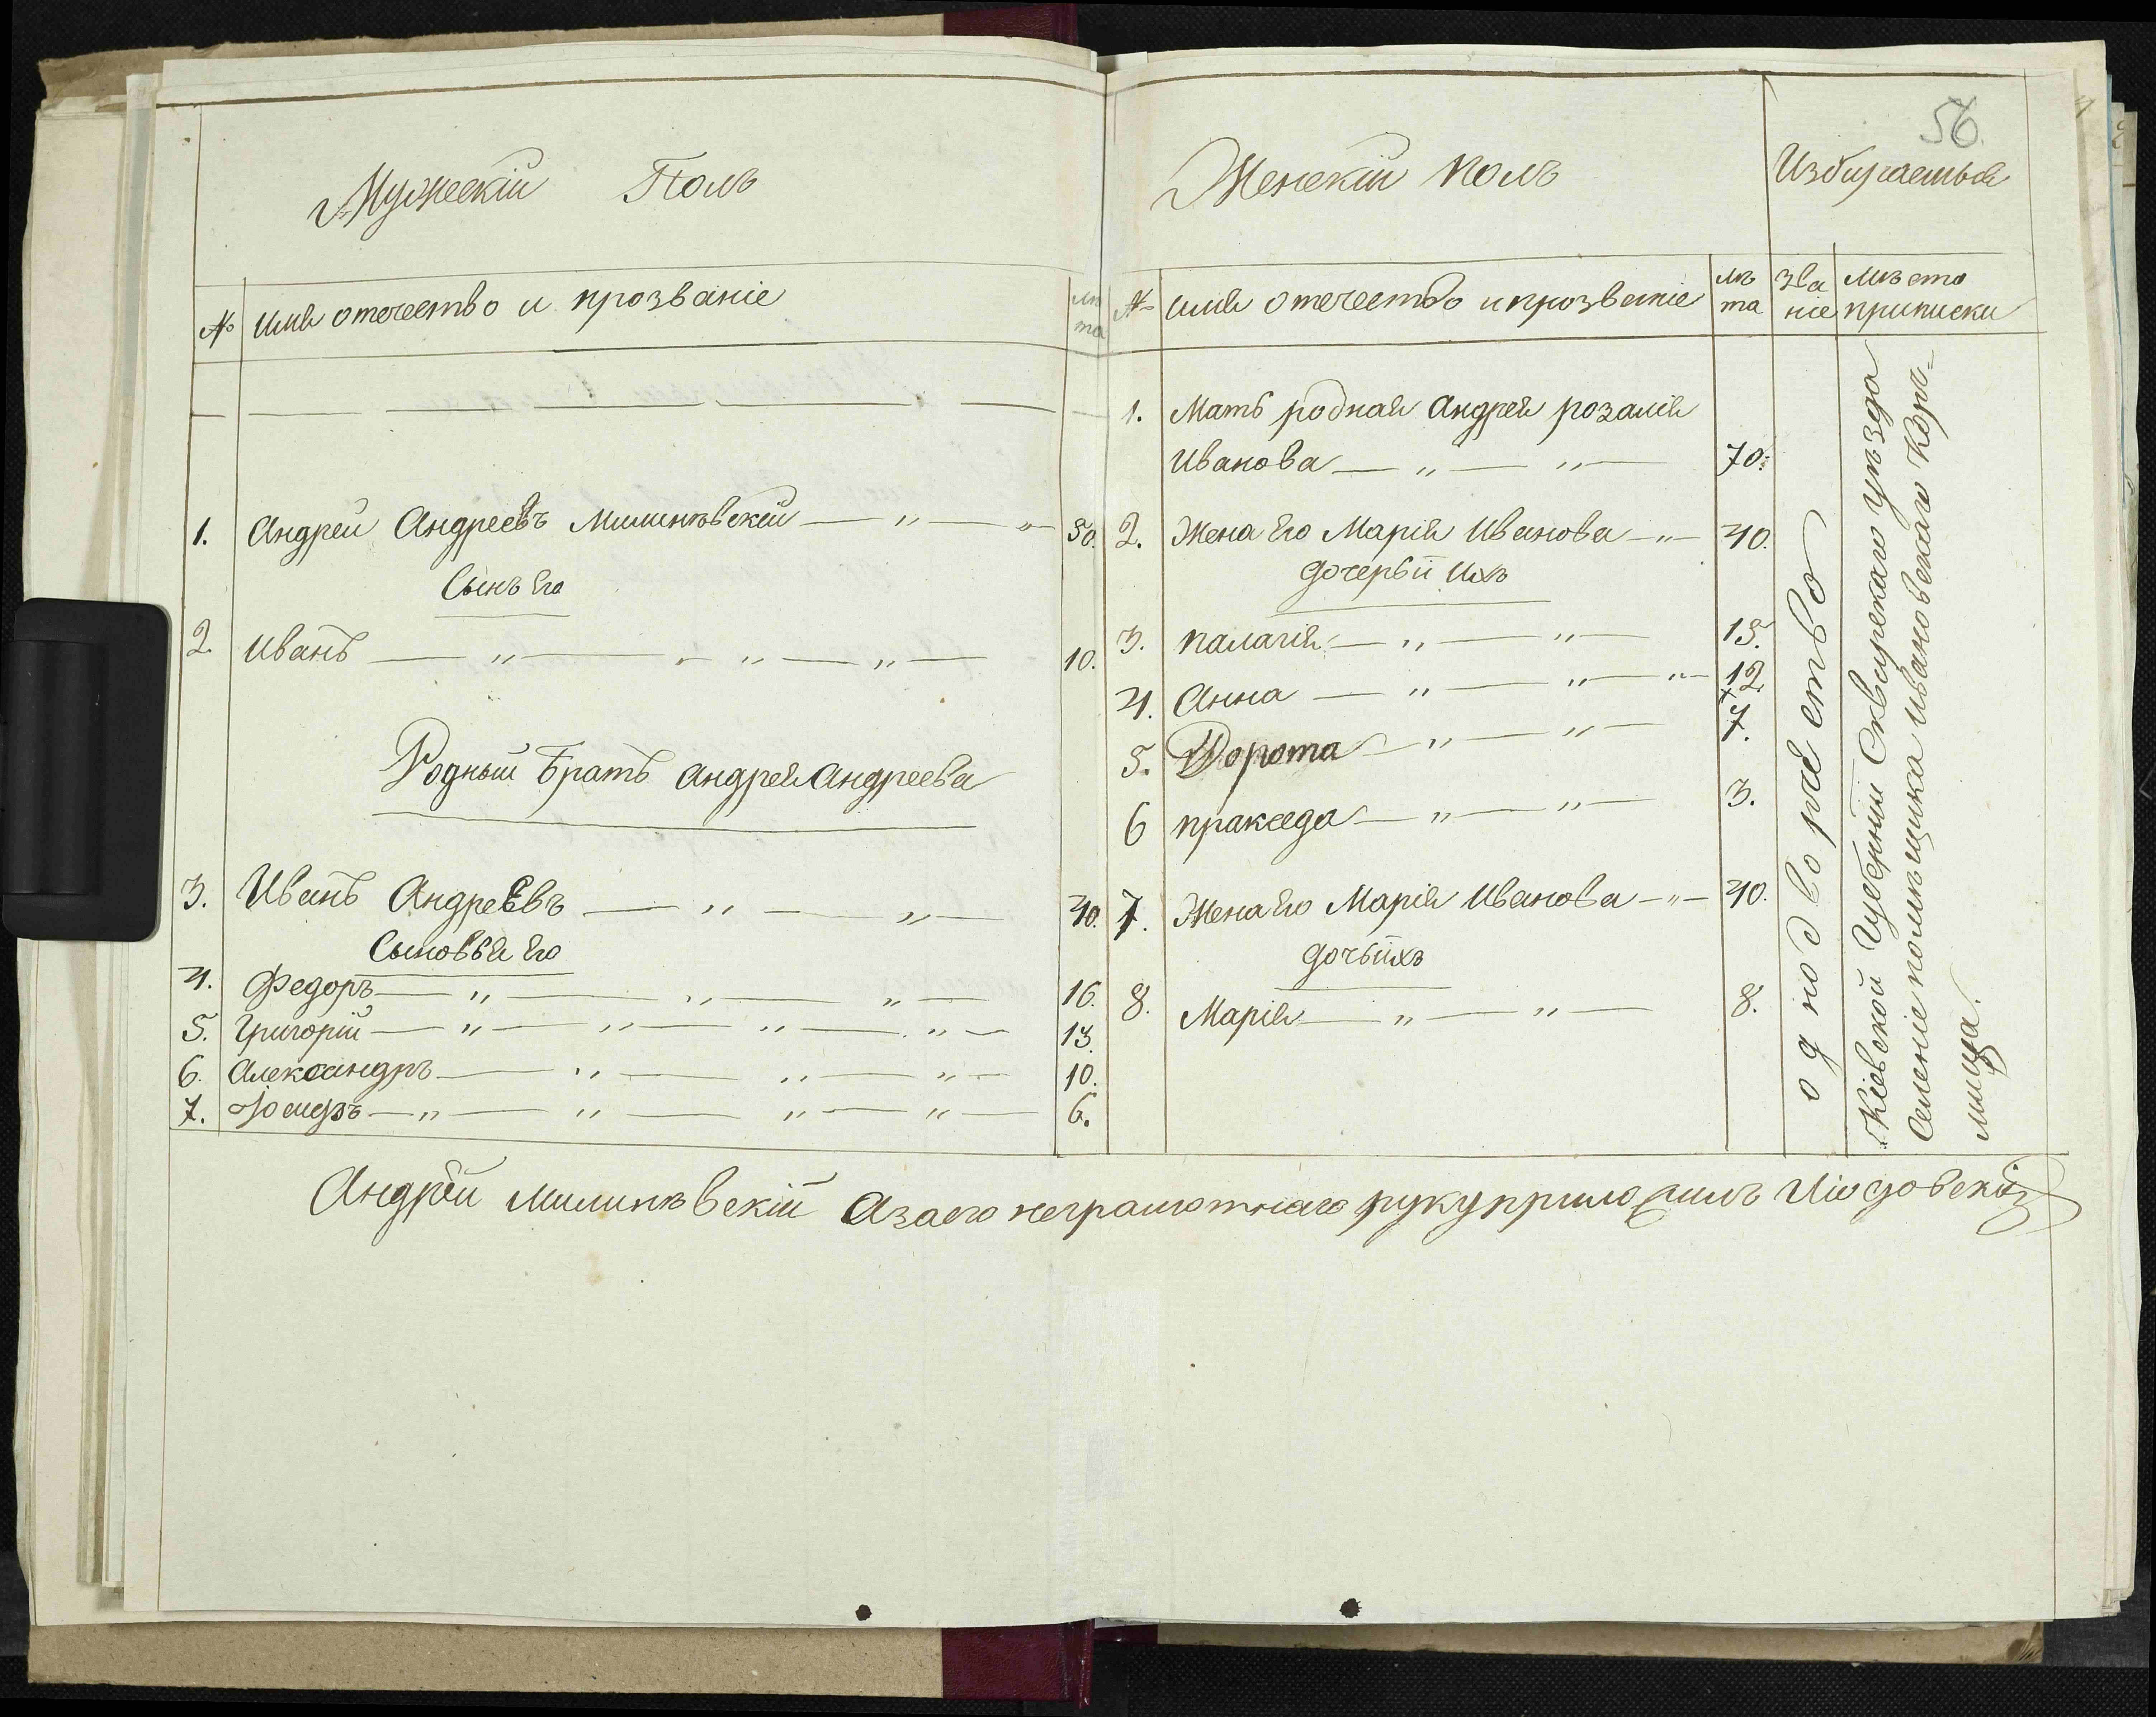 56.
Мужескій Полъ
№ имя отечество и прозваніе лѣта
1. Андрей Андреевъ Милинѣвскій — „ — „ 50.
Сынъ Его
2. Иванъ — „ — „ — „ — „ — 10.
Родный Братъ Андрея Андреева
3. Иванъ Андреевъ — „ — „ — 40.
Сыновья Его
4. Федоръ — „ — „ — „ — 16.
5. Григорій — „ — „ — „ — „ — 13.
6. Александръ — „ — „ — „ — 10.
7. — „ — „ — „ — „ — 6.
Женскій полъ
Избираетъ
№ имя отечество и прозваніе лѣта званіе мѣсто приписки
1. Мать родная Андрея розалія
Иванова — „ — „ — 70.
2. Жена Его Марія Иванова — „ — 40.
дочерьи ихъ
3. палагія — „ — „ — 15.
4. Анна — „ — „ — „ — 12.
5. Дорота — „ — „ — 7.
6 пракседа — „ — „ — 3.
7. Жена Его Марія Иванова — „ — 40.
дочь ихъ
8. Марія — „ — „ — 8.
однодворчество
Кіевской Губерніи Сквирскаго уѣзда
Селеніе помѣщика Ивановскаго Кри-
лица.
Андрей Милинѣвскій А за его неграмотнаго руку приложилъ